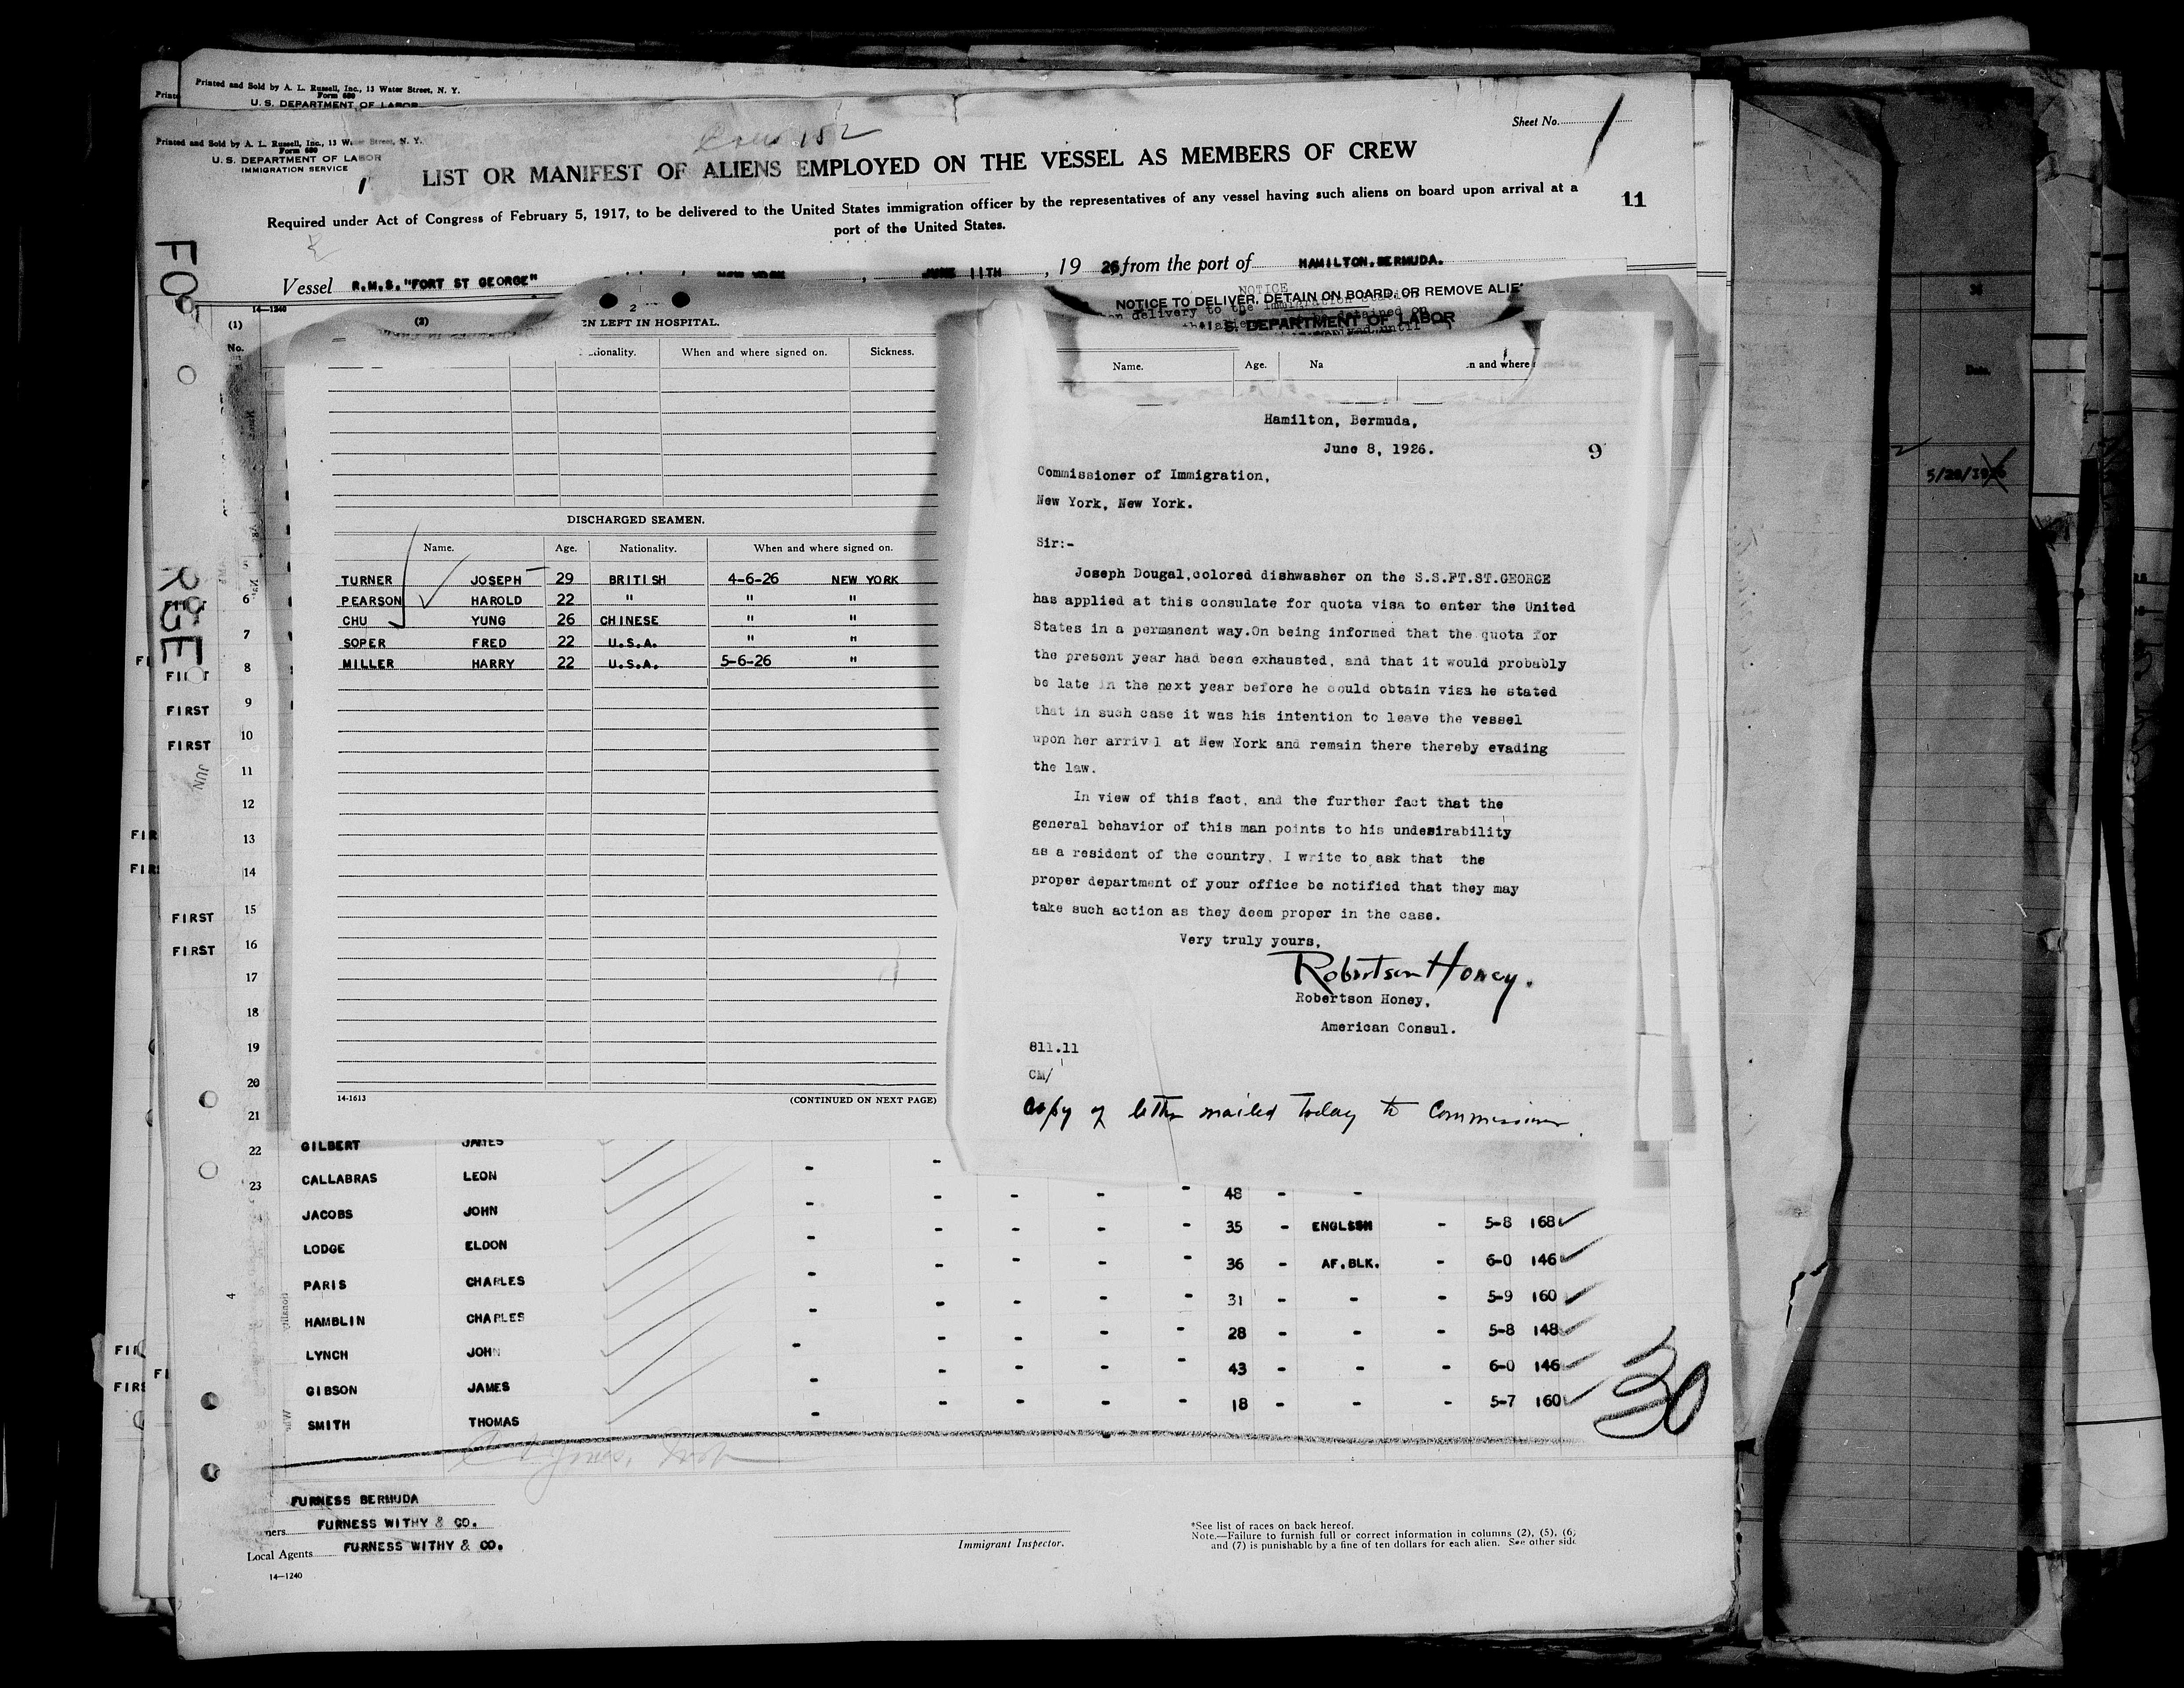 Printed and Sold by A. L. Russell, Inc., 13 Water Street, N. Y.
Form 680
U. S. DEPARTMENT OF LABOR
Printed and Sold by A. L. Russell, Inc., 13 Water Street, N. Y.
Form 680
U. S. DEPARTMENT OF LABOR
IMMIGRATION SERVICE
Sheet No. 1
152
LIST OR MANIFEST OF ALIENS EMPLOYED ON THE VESSEL AS MEMBERS OF CREW
11
Required under Act of Congress of February 5, 1917, to be delivered to the United States immigration officer by the representatives of any vessel having such aliens on board upon arrival at a
port of the United States.
Vessel R.M.S. "FORT ST GEORGE" NEW YORK, JUNE 11TH, 19 26 from the port of HAMILTON, BERMUDA.
14-1240
(1) (2)
No.
2
EN LEFT IN HOSPITAL.
When and where signed on. Sickness.
DISCHARGED SEAMEN.
Name. Age. Nationality. When and where signed on.
TURNER JOSEPH 29 BRITISH 4-6-26 NEW YORK
PEARSON HAROLD 22 " " "
CHU YUNG 26 CHINESE " "
SOPER FRED 22 U.S.A. " "
MILLER HARRY 22 U.S.A. 5-6-26 "
14-1613 (CONTINUED ON NEXT PAGE)
NOTICE
NOTICE TO DELIVER, DETAIN ON BOARD, OR REMOVE ALIE
delivery to the Immigration
S. DEPARTMENT OF LABOR
Name. Age. Na n and where
Hamilton, Bermuda,
June 8, 1926.
9
Commissioner of Immigration,
New York, New York.
Sir:-
Joseph Dougal,colored dishwasher on the S.S.FT.ST.GEORGE
has applied at this consulate for quota visa to enter the United
States in a permanent way.On being informed that the quota for
the present year had been exhausted, and that it would probably
be late in the next year before he could obtain visa he stated
that in such case it was his intention to leave the vessel
upon her arrival at New York and remain there thereby evading
the law.
In view of this fact, and the further fact that the
general behavior of this man points to his undesirability
as a resident of the country, I write to ask that the
proper department of your office be notified that they may
take such action as they deem proper in the case.
Very truly yours,
Robertson Honey.
Robertson Honey,
American Consul.
811.11
CM/
Copy of letter mailed today to Commissioner.
FO
RGE
6
7
8
FIRST 9
FIRST 10
JUN
11
12
13
14
FIRST 15
FIRST 16
17
18
19
20
21
22
23
4
GILBERT JAMES
CALLABRAS LEON
JACOBS JOHN
LODGE ELDON
PARIS CHARLES
HAMBLIN CHARLES
LYNCH JOHN
GIBSON JAMES
SMITH THOMAS
- 48 - -
- 35 - ENGLSSH - 5-8 168
- 36 - AF.BLK. - 6-0 146
- 31 - - - 5-9 160
- 28 - - - 5-8 148
- 43 - - - 6-0 146
- 18 - - - 5-7 160
30
FURNESS BERMUDA
ners FURNESS WITHY & CO.
Local Agents FURNESS WITHY & CO.
14-1240
Immigrant Inspector.
*See list of races on back hereof.
Note.—Failure to furnish full or correct information in columns (2), (5), (6)
and (7) is punishable by a fine of ten dollars for each alien. See other side
Date.
5/28/1926